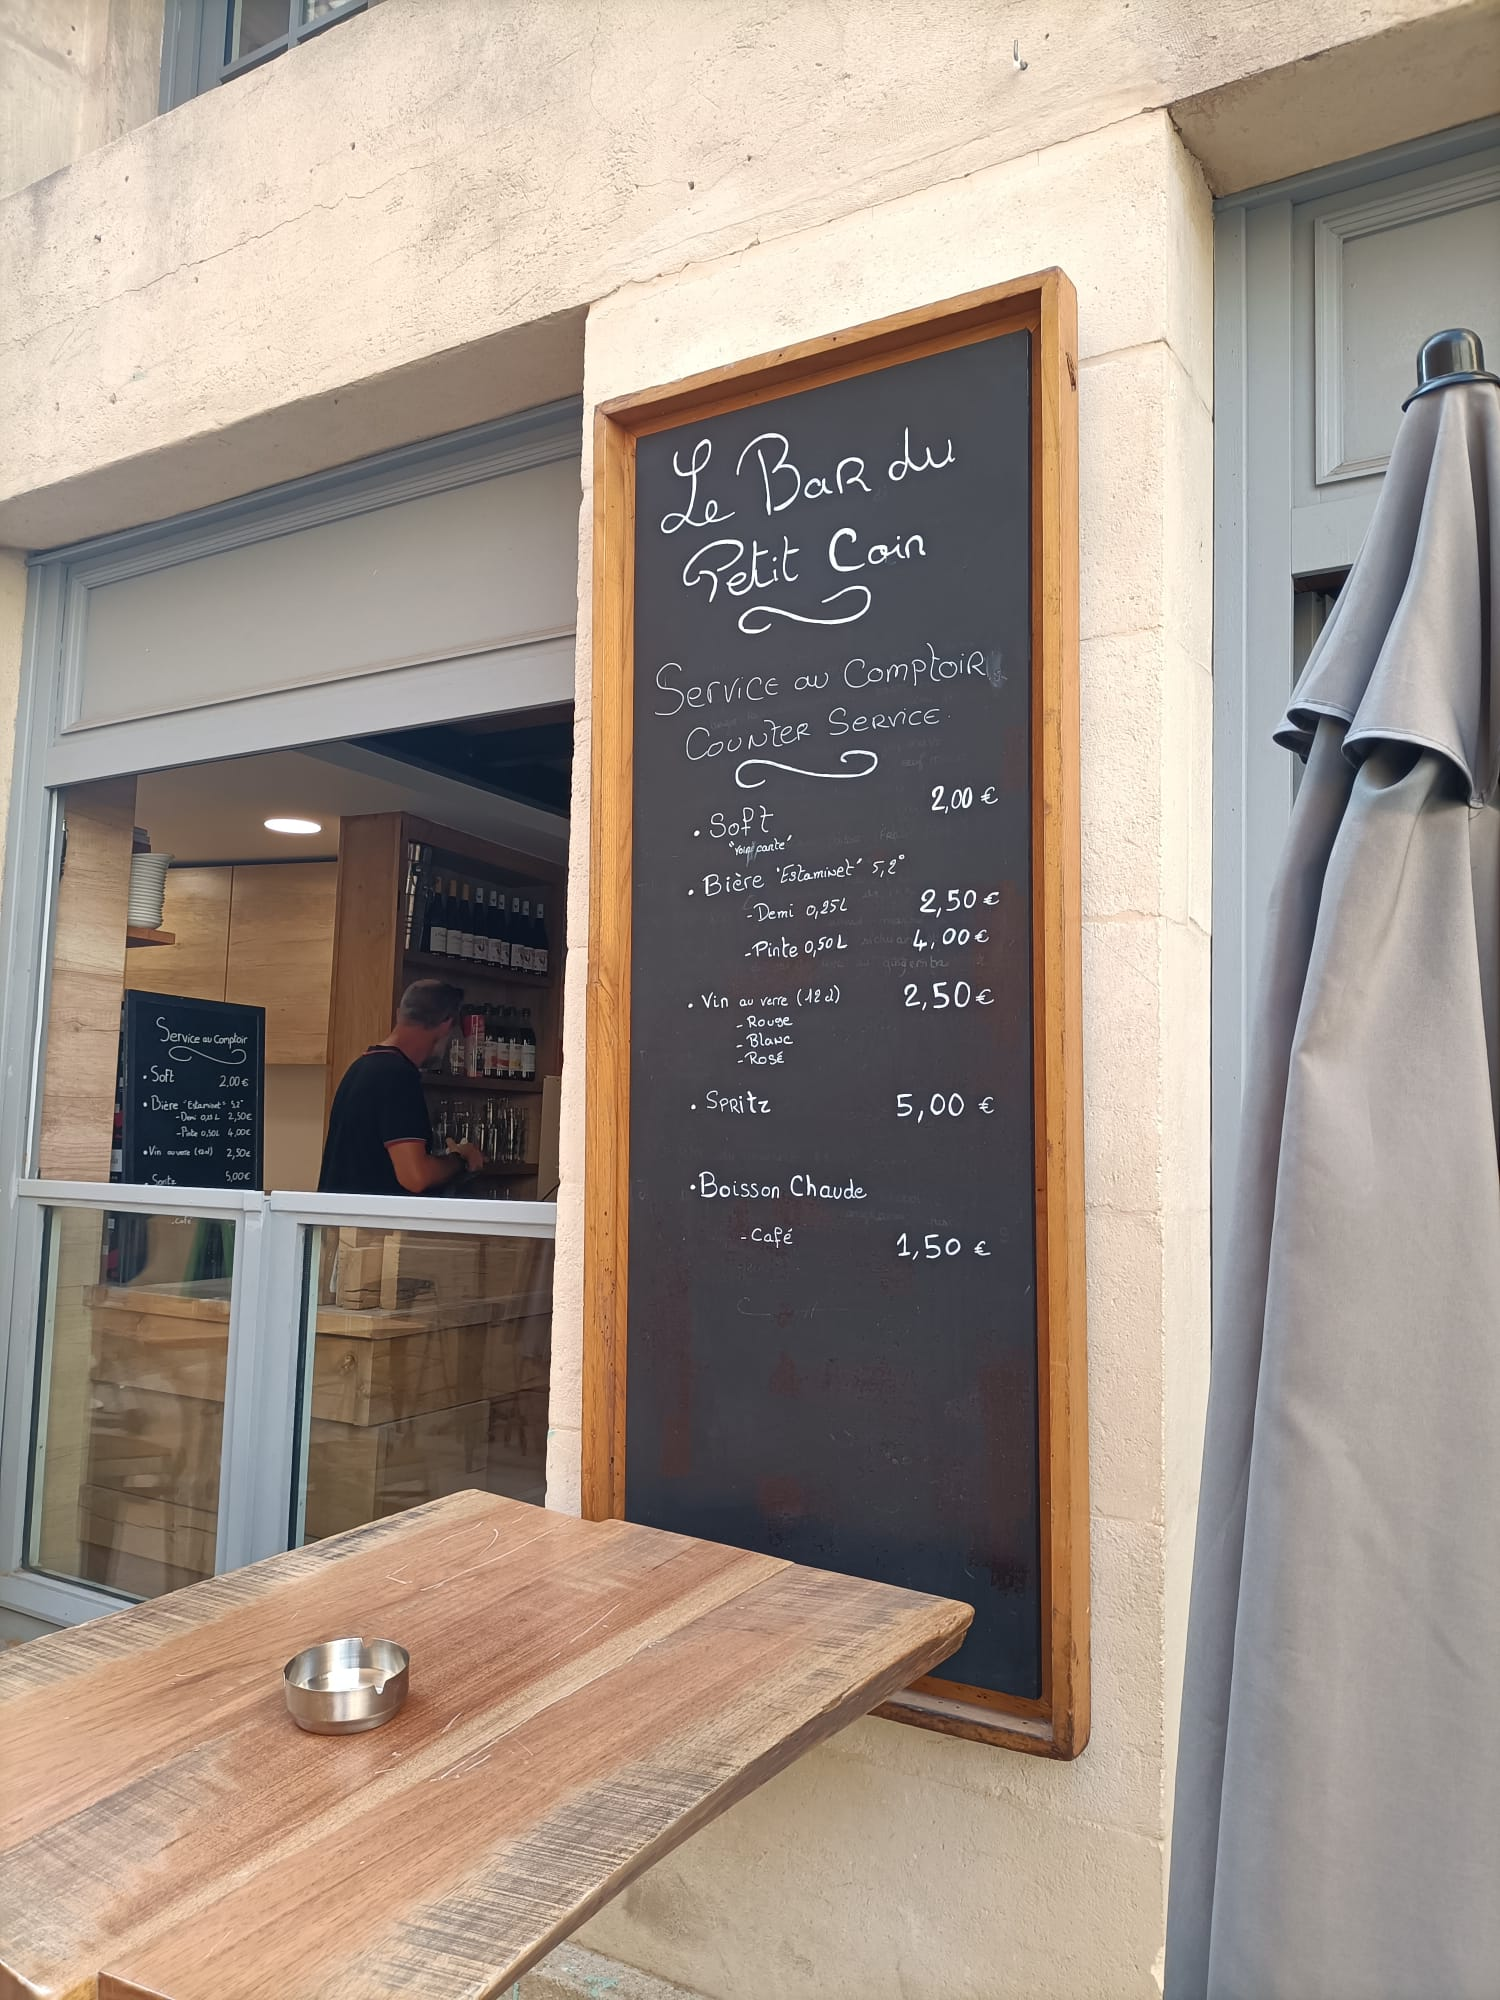 Le Bar du
Petit Coin
Service au Comptoir
Counter Service
• Soft 2,00 €
"Voir carte"
• Bière "Estaminet" 5,2°
- Demi 0,25L 2,50 €
- Pinte 0,50L 4,00 €
• Vin au verre (12 cl) 2,50 €
- Rouge
- Blanc
- Rosé
• Spritz 5,00 €
• Boisson Chaude
- Café 1,50 €
Service au Comptoir
• Soft 2,00 €
• Bière "Estaminet" 5,2°
- Demi 0,25 L 2,50 €
- Pinte 0,50L 4,00 €
• Vin au verre (12cl) 2,50 €
• Spritz 5,00 €
- Café